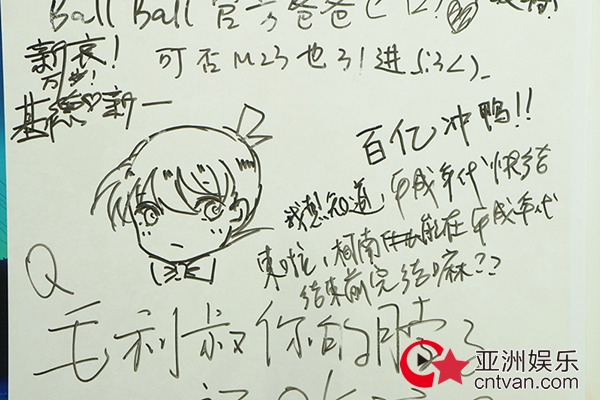 Ball Ball 官方爸爸
新哀!
万岁!
可否M23也引进
基德♡新一
百亿冲鸭!!
我想知道,平成年代快结
束啦,柯南能在平成年代
结束前完结嘛??
Q
毛利叔你的
亚洲娱乐
cntvan.com